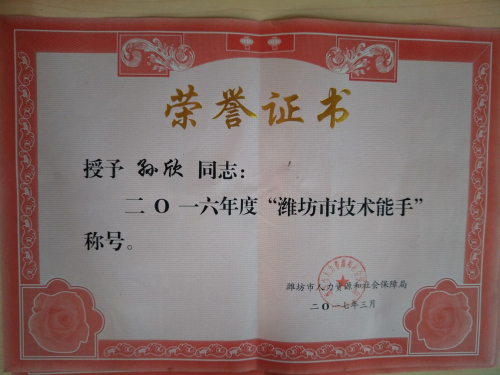 荣誉证书
授予 孙欣 同志：
二〇一六年度“潍坊市技术能手”
称号。
潍坊市人力资源和社会保障局
二〇一七年三月